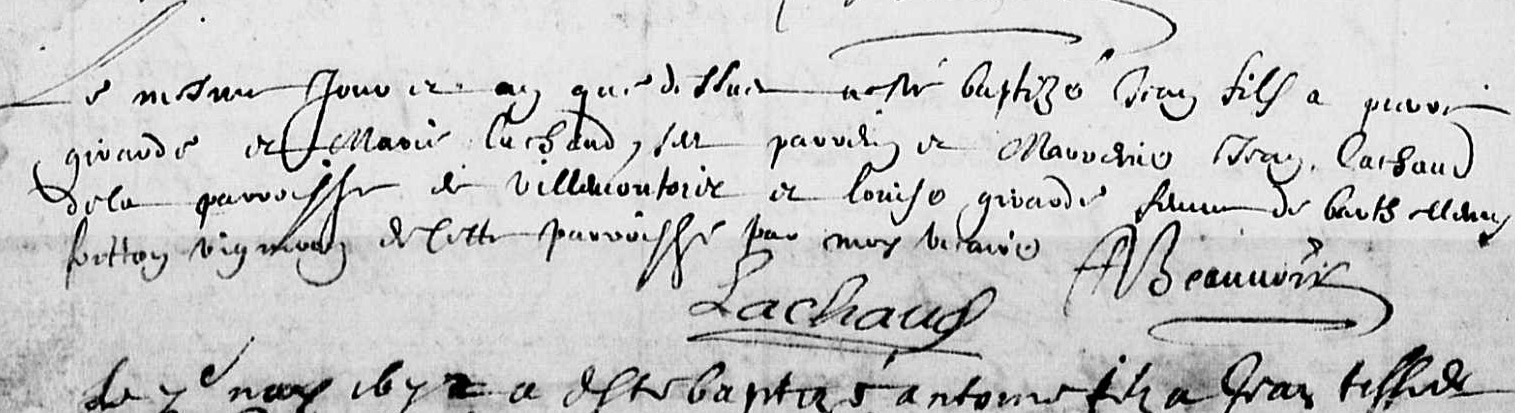 Le mesme Jour et an que dessus a esté baptizé Jean fils a pierre
girarde et Marie lachaud, ses parrein et Marreine Jean lachaud
de la parroisse de et louise girarde femme de barthellemy
vigneron de cette parroisse par moy vicaire
Beauvoir
Lachaud
Le 7e may 1672 a esté baptizé antoine filz a Jean